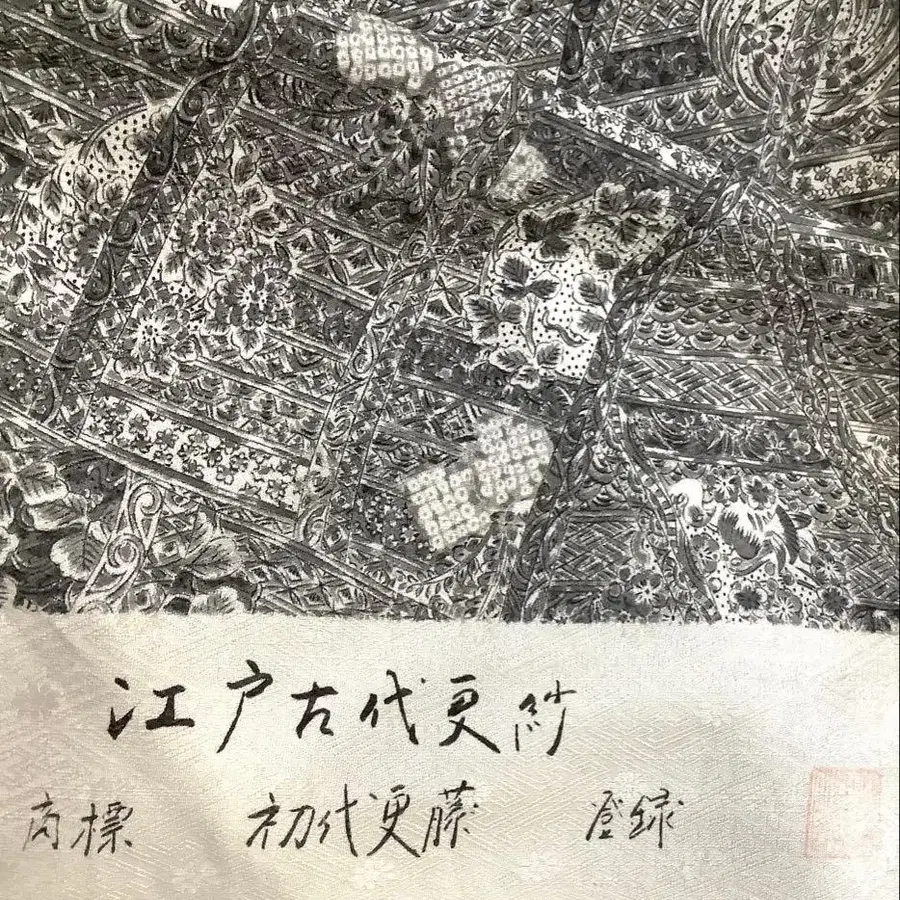 江戸古代更紗
商標 初代更藤 登録